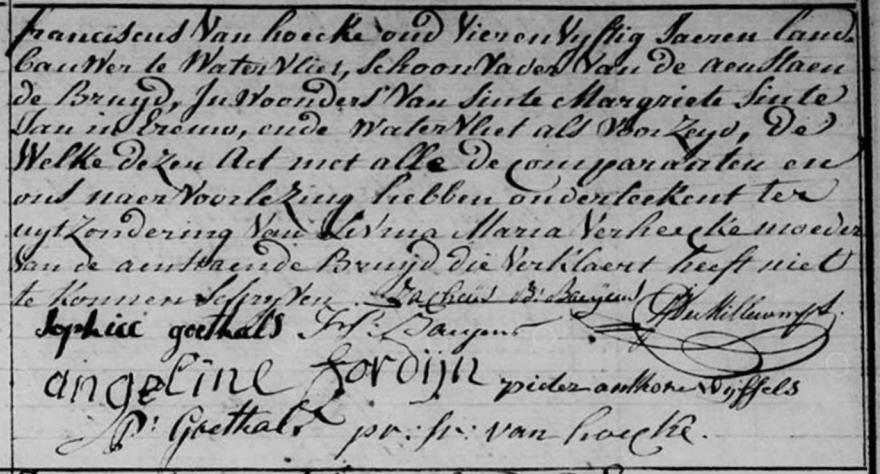 franciscus Van hoecke oud Vier en Vyftig Jaeren land-
bauwer te WaterVliet, SchoonVader Van de aenstaen
de Bruyd, Inwoonders Van Sinte Margriete Sinte
Jan in Eremo, ende WaterVliet als VoorZeyd, de
Welke dezen Act met alle de Comparanten en
ons naer Voorlezing hebben onderteekent ter
uytZondering Van Maria Verheecke moeder
Van de aenstaende Bruyd die Verklaert heeft niet
te konnen Schryven. Bauwens
Sophie goethals Fr: Bauwens
angeline fordijn pieter anthone Wyffels
P: Goethals pr: fr: van hoecke.